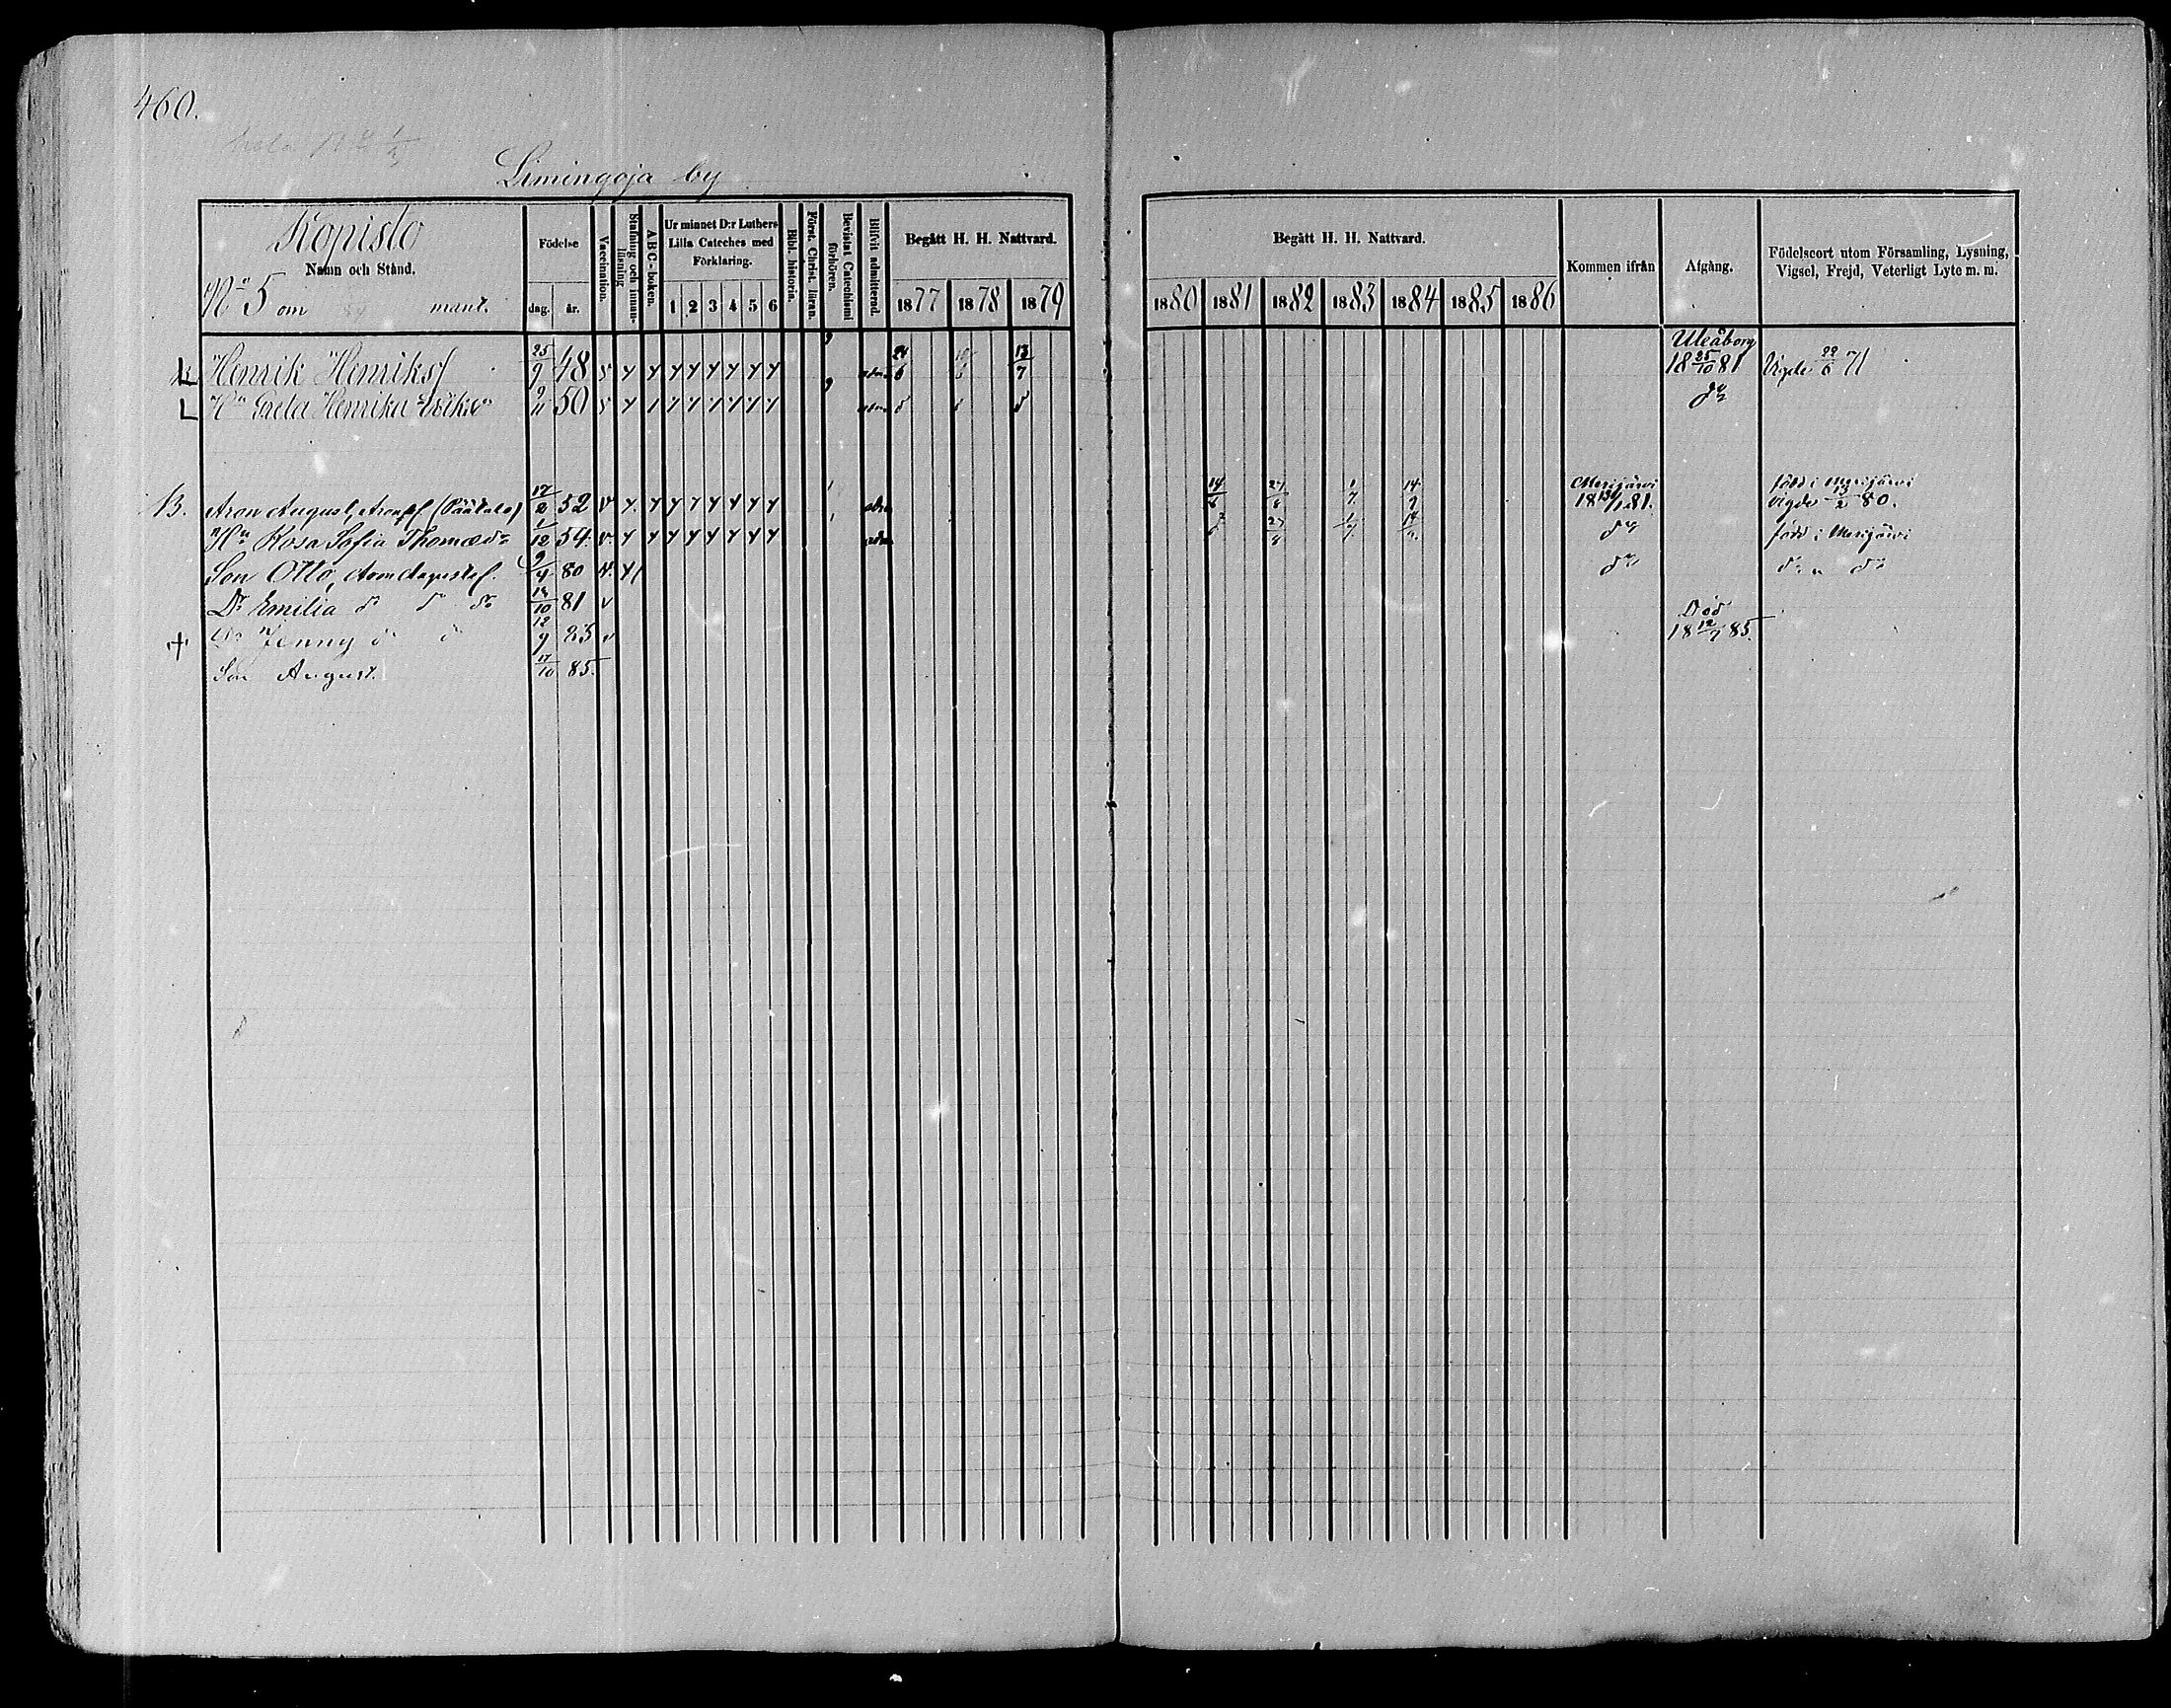 460.
Limingoja by
Kopisto
Namn och Stånd.
No 5 om mant.
Födelse
dag. år.
Vaccination.
Stafning och innanläsning
A B C-boken.
Ur minnet D:r Luthers Lilla Cateches med Förklaring.
1 2 3 4 5 6
Bibl. historia.
Först. Christ. läran.
Bevistat Catechismi förhören.
Blifvit admitterad.
Begått H. H. Nattvard.
1877 1878 1879
Begått H. H. Nattvard.
1880 1881 1882 1883 1884 1885 1886
Kommen ifrån
Afgång.
Födelseort utom Församling, Lysning, Vigsel, Frejd, Veterligt Lyte m. m.
Henrik Henrikss 25/9 48 adm 24/6 13/7 Uleåborg 18 25/10 81 Vigde 22/6 71
Hu Greta Henrika 9/11 50 adm do
B. Aron August, Aronss. (Päätalo) 17/2 52 v adm 14/6 27/8 1/7 14/9 Merijärvi 18 81. född i Merijärvi Vigde 13/2 80.
Hu Rosa Sofia Thomæd:r 1/12 54. v. adm 27/8 1/7 14/9 do född i Merijärvi
Son Otto, Aron Augustss. 9/4 80 do do do
Dr Emilia do do do 14/10 81 v
+ Dr Jenny do do 12/9 83 v Död 18 12/7 85.
Son August. 17/10 85.